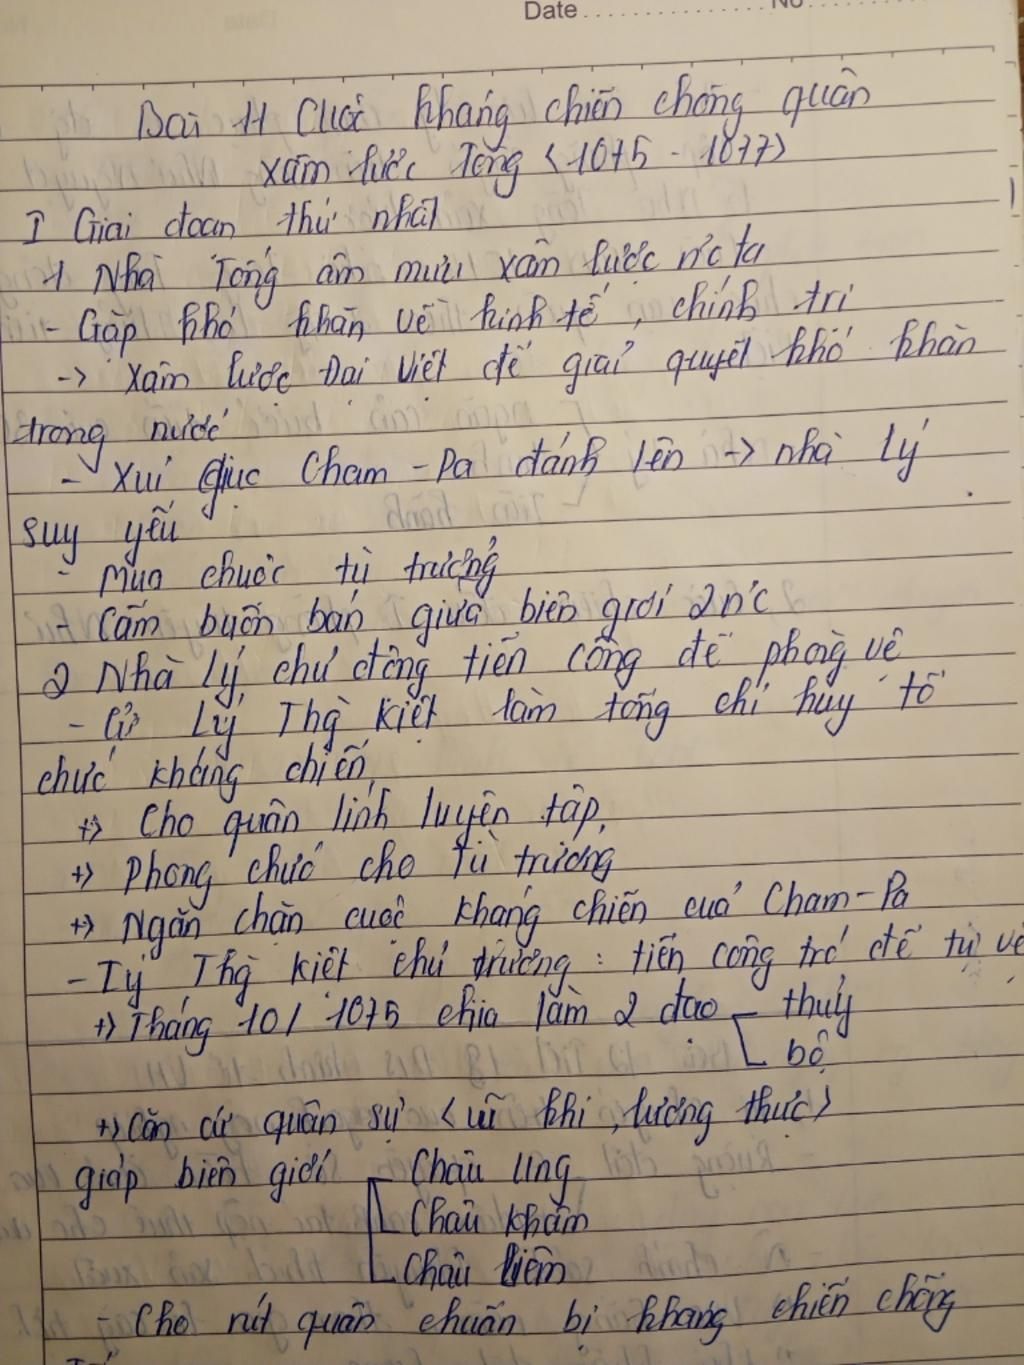 Date No
Bài 11 Cuộc kháng chiến chống quân
xâm lược Tống <1075 - 1077>
I Giai đoạn thứ nhất
1 Nhà Tống âm mưu xâm lược nc ta
- Gặp khó khăn về kinh tế, chính trị
-> Xâm lược Đại Việt để giải quyết khó khăn
trong nước
- Xúi giục Cham-Pa đánh lên -> nhà Lý
suy yếu
- Mua chuộc tù trưởng
- Cấm buôn bán giữa biên giới 2 nc
2 Nhà Lý chủ động tiến công để phòng vệ
- Cử Lý Thg Kiệt làm tổng chỉ huy tổ
chức kháng chiến
+> Cho quân lính luyện tập,
+> Phong chức cho tù trưởng
+> Ngăn chặn cuộc kháng chiến của Cham-Pa
- Lý Thg Kiệt chủ trương: tiến công trc để tự vệ
+> Tháng 10/1075 chia làm 2 đạo thủy
bộ
+> Căn cứ quân sự <vũ khí, lương thực>
giáp biên giới Châu Ung
Châu Khâm
Châu Liêm
- Cho rút quân chuẩn bị kháng chiến chống